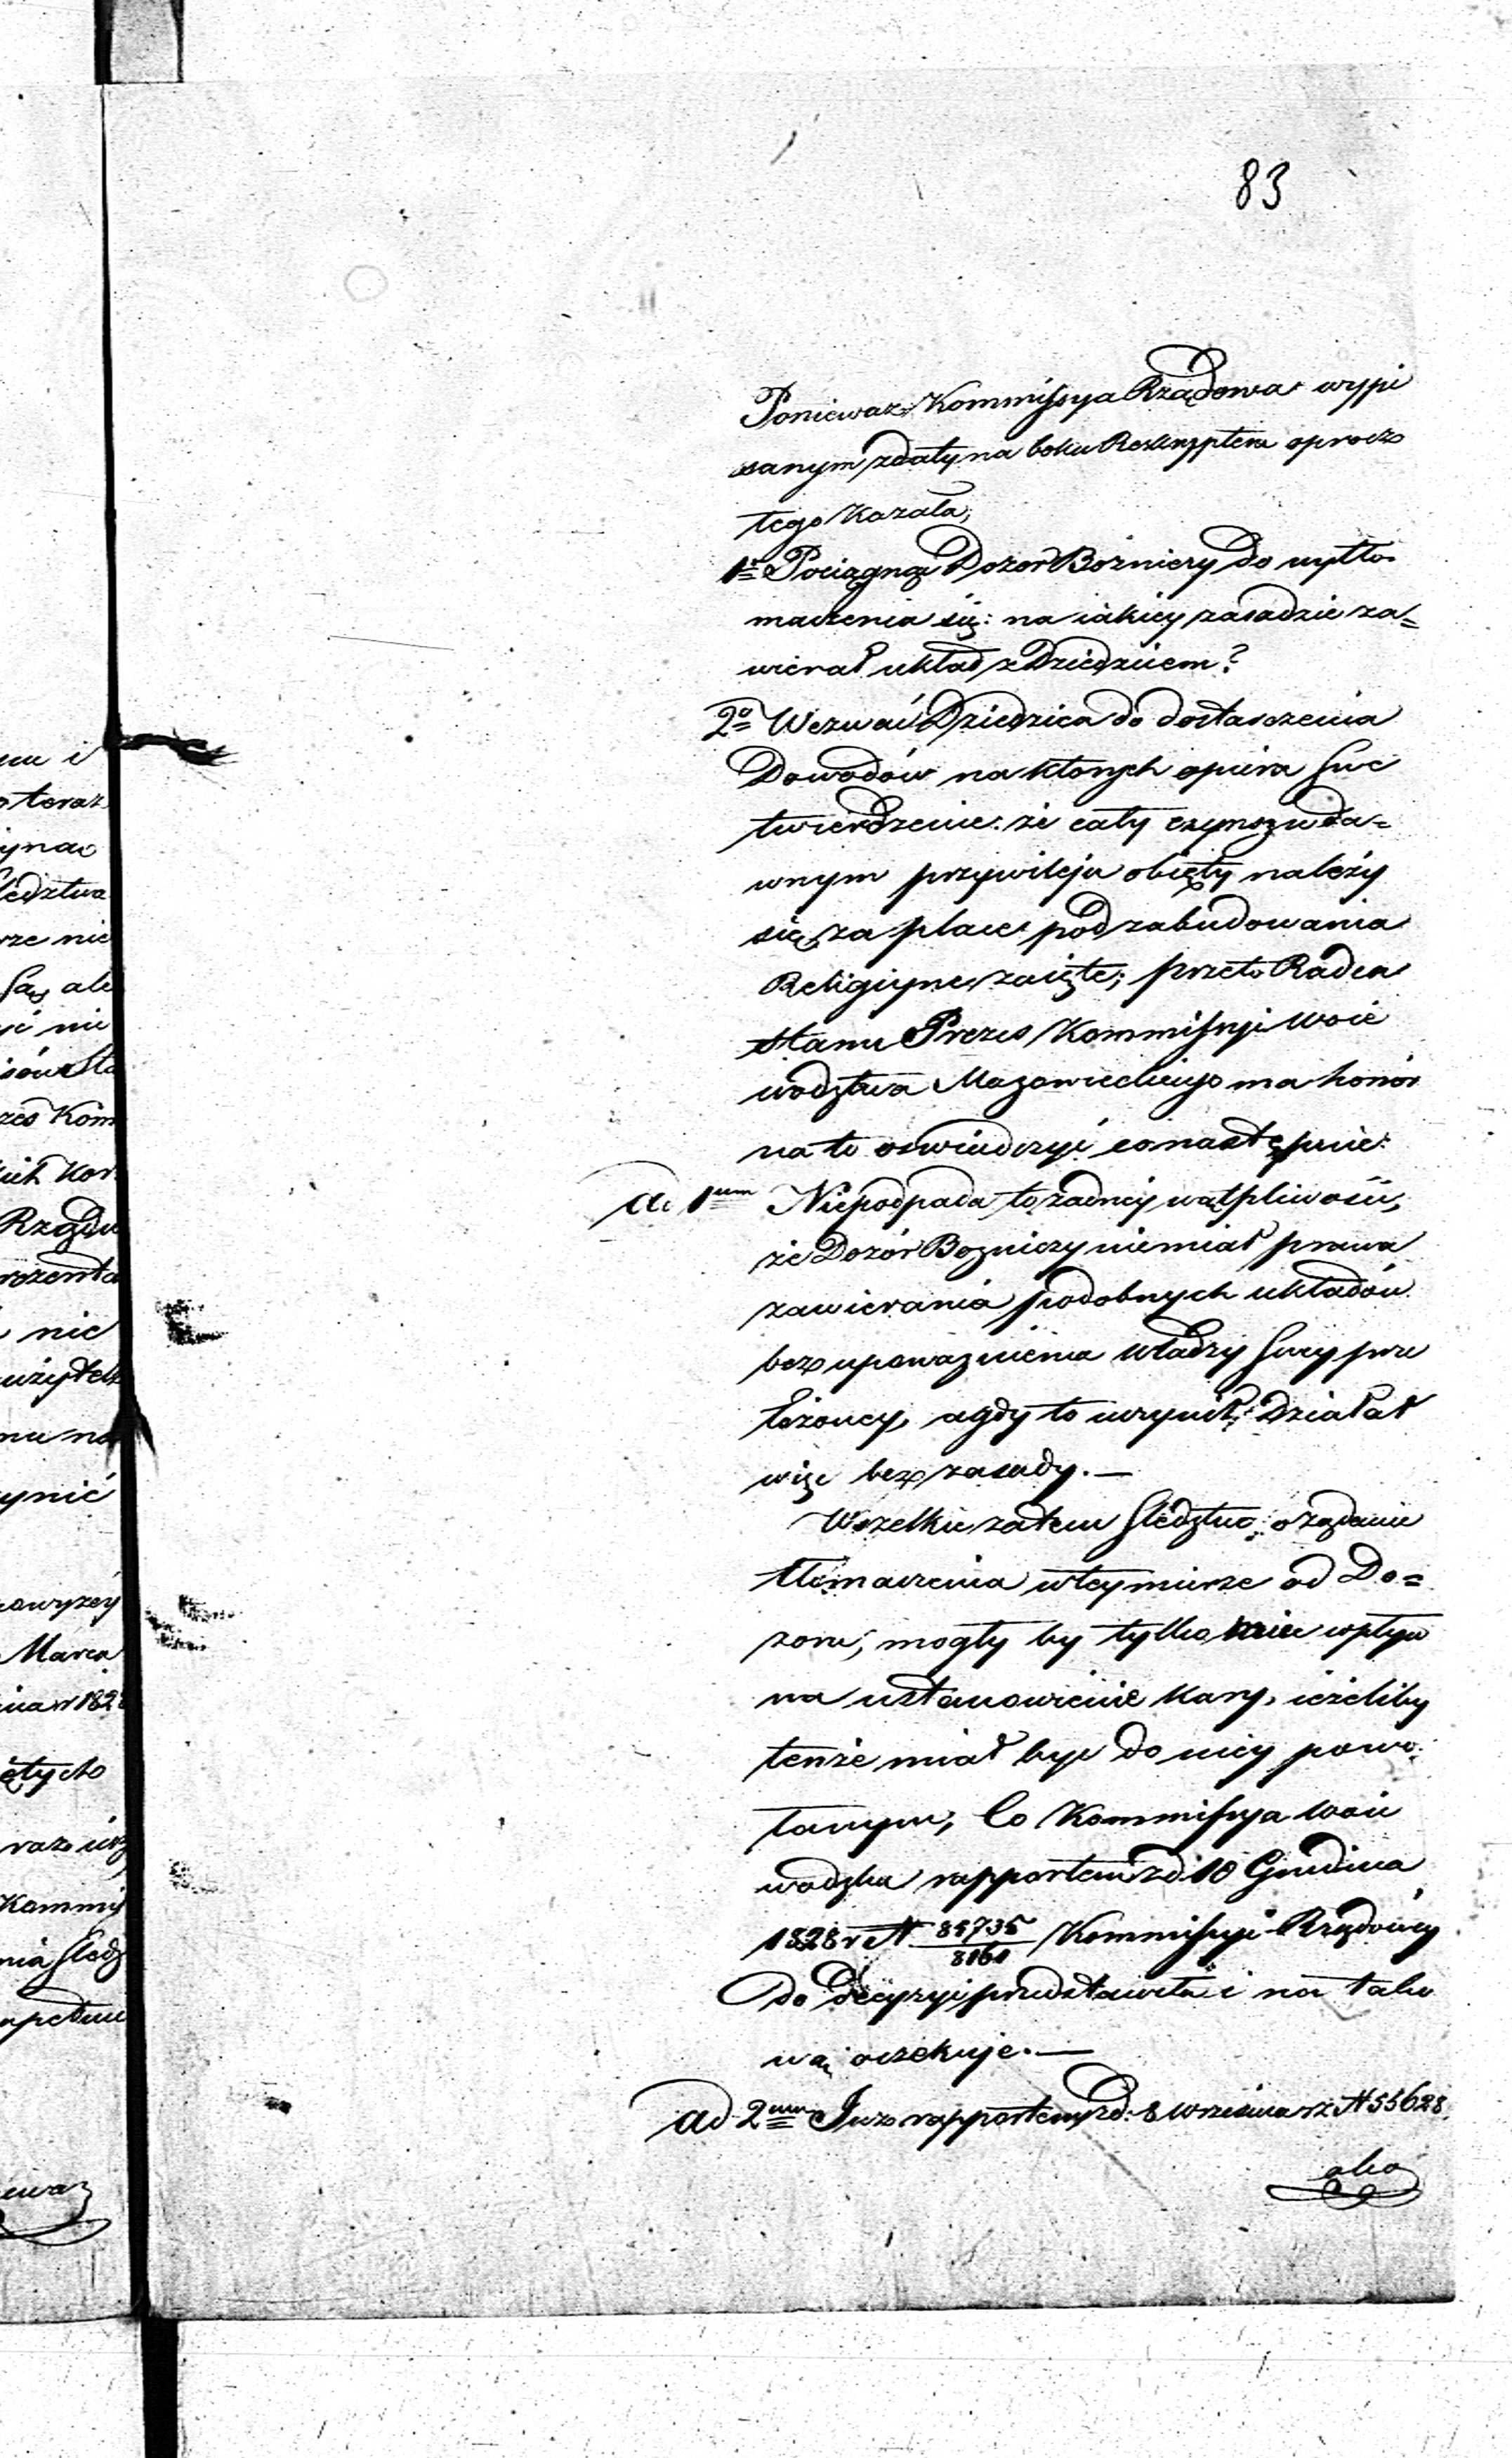 83
Ponieważ Kommissya Rządowa wypi
sanym zdaty na boku Reskryptem oprocz
tego Kazała,
1º Pociągnąć Dozor Bożniczy do wytło
maczenia się: na iakiey zasadzie za=
wierał układ z Dziedzicem?
2º Wezwać Dziedzica do dostarczenia
Dowodów na ktorych opiera swe
twierdzenie: że cały czynsz w da=
wnym przywileju obięty należy
się za place pod zabudowania
Religiyne zaięte; przeto Radca
Stanu Prezes Kommissyi Woie
wodztwa Mazowieckiego ma honór
na to oswiadczyć co następuie:
Ad 1um Niepodpada to żadney wątpliwości,
że Dozór Bozniczy niemiał prawa
zawierania podobnych układów
bez upoważnienia Władzy swey prze
łożoney, a gdy to uczynił, Działał
więc bez zasady.—
Wszelkie zatem sledztwo, o żądanie
tłómaczenia wtey mierze od Do=
zoru, mogły by tylko mieć wpływ
na ustanowienie kary, ieżeliby
tenże miał bydź do niey powo
łanym, Co Kommissya Woie
wodzka rapportem zd: 10 Grudnia
1828 r N 84735/8161 Kommissyi Rządowey
do decyzyi przedstawiła i na tako
wą oczekuje.—
Ad 2um Juz rapportem zd: 8 Wrzesnia rz N 55628.
ako
nu i
teraz
ynao
ledztwa
rze nie
są ale
nie
zes Kom
ich Kor
Rządu
nie
mu na
ynić
Marca
1828
ątych
raz
Kommis
nia sledz